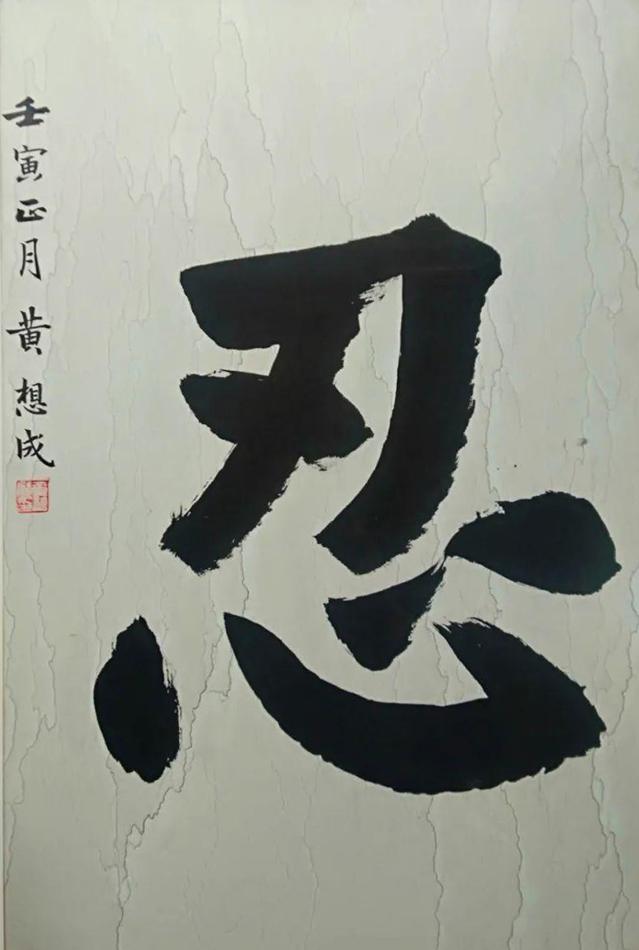 忍
壬寅正月黄想成